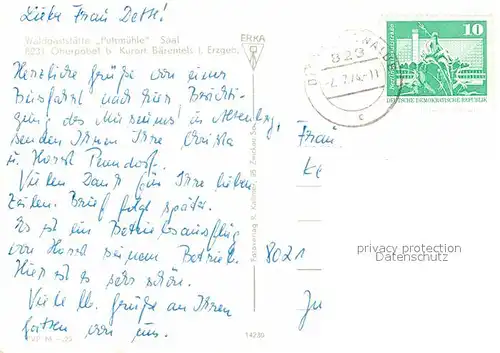 Liebe Frau Dette!
Waldgaststätte „Putzmühle" Saal
8231 Oberpöbel b. Kurort Bärenfels i. Erzgeb.
ERKA
Herzliche Grüße von einer
Busfahrt nach hier, Besichti-
gung des Museums in Altenberg,
senden Ihnen Ihre Christa
u. Horst
Vielen Dank für Ihre lieben
Zeilen. Brief folgt später.
Es ist ein Betriebsausflug
von Horst seinem Betrieb.
Hier ist es sehr schön.
Viele lb. Grüße an Ihren
Gatten von uns.
823
10
DEUTSCHE DEMOKRATISCHE REPUBLIK
c
Frau
8021
privacy protection
Datenschutz